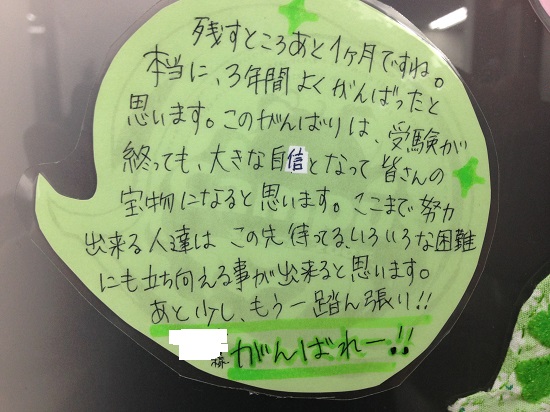 残すところあと1ヶ月ですね。
本当に、3年間よくがんばったと
思います。このがんばりは、受験が
終っても、大きな自信となって皆さんの
宝物になると思います。ここまで努力
出来る人達は、この先待ってる、いろいろな困難
にも立ち向える事が出来ると思います。
あと少し、もう一踏ん張り!!
がんばれー!!